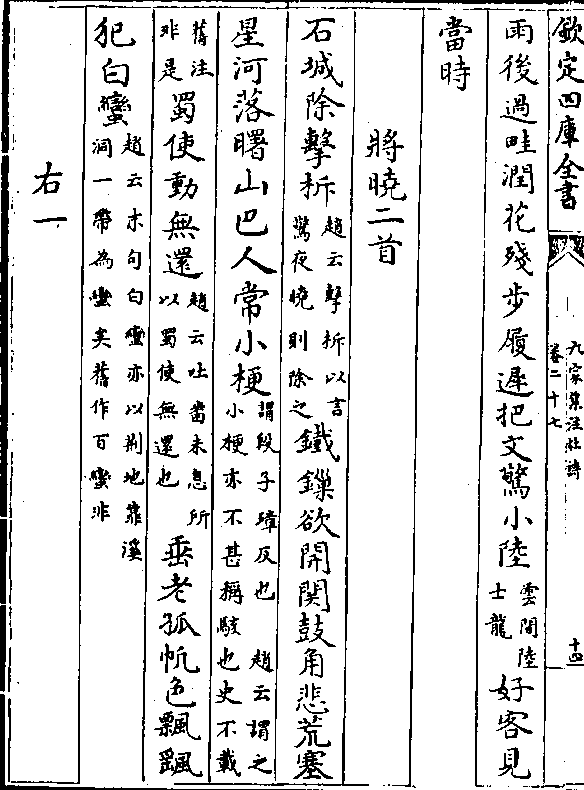 欽定四庫全書
九家集注杜詩
卷二十七
十四
雨後過畦潤花殘步屧遲把文驚小陸雲間陸士龍好客見
當時
將曉二首
石城除擊柝趙云擊柝以言驚夜曉則除之鐵鏁欲開關鼓角悲荒塞
星河落曙山巴人常小梗謂段子璋反也 趙云謂之小梗亦不甚稱駭也史不載
舊注非是蜀使動無還趙云吐蕃未息所以蜀使無還也垂老孤帆色飄飄
犯白蠻趙云末句白蠻亦以荆地靠溪洞一帶為蠻矣舊作百蠻非
右一